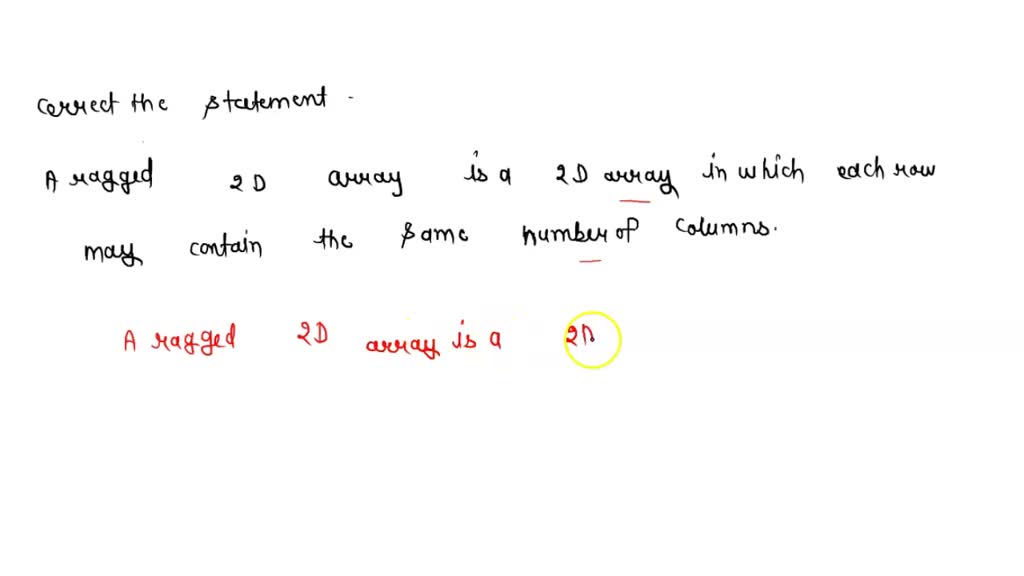 correct the statement.
A ragged 2D array is a 2D array in which each row
may contain the same number of columns.
A ragged 2D array is a 2D